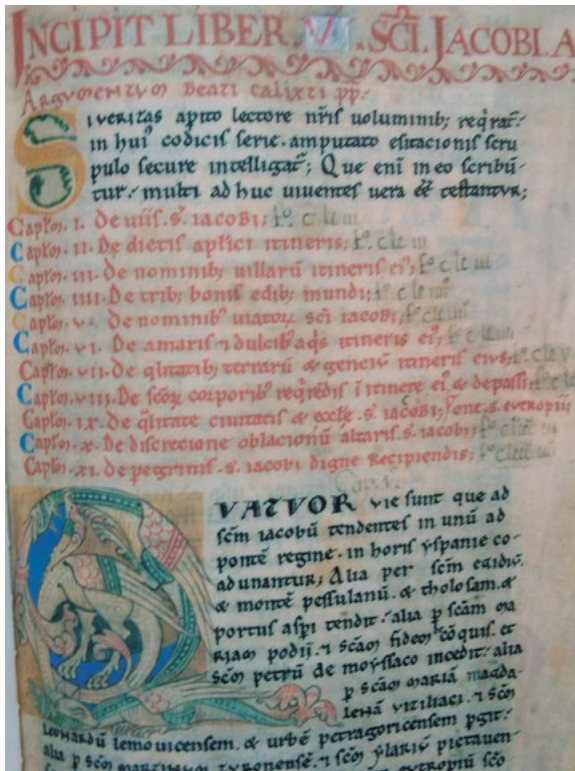 INCIPIT LIBER .V. SCI. JACOBI. A
Argumentum Beati Calixti pp.
Si veritas apito lectore nr̄is uoluminib; req̄rat᷑.
in hui᷒ codicis serie. amputato esitacionis scru
pulo secure intelligat᷑; Que eni in eo scribū-
tur. multi ad huc uiuentes uera eē testantur;
Capl̄m. I. De uiis. s. iacobi; fo. c le
Capl̄m. II. De dietis apl̄ici itineris; fo. c le
Capl̄m. III. De nominib; uillarū itineris ei᷒; fo. c le
Capl̄m. IIII. De trib; bonis edib; mundi; fo. c le
Capl̄m. V. De nominib᷒ uiatorꝝ sc̄i iacobi; fo. c le
Capl̄m. VI. De amaris ⁊ dulcib᷒ aq̄s itineris ei᷒; fo. c le
Capl̄m. VII. De q̄litatib; terrarū & genciū itineris eius; fo. c le
Capl̄m. VIII. De sc̄oꝝ corporib᷒ req̄rēdis ī itinere ei᷒ & de passi
Capl̄m. IX. De q̄litate ciuitatis & eccl̄e. s. iacobi; s. eutropii;
Capl̄m. X. De discrecione oblacionū altaris. s. iacobi; fo
Capl̄m. XI. De peregrinis. s. iacobi digne recipiendis; fo
Cap. i.
QVATVOR vie sunt que ad
sc̄m iacobū tendentes in unū ad
pontē regine. in horis yspanie co-
adunantur; Alia per sc̄m egidiū.
& montē pessulanū. & tholosam. &
portus asp̄i tendit. alia p sc̄am ma
riam podii. ⁊ sc̄am fidem cōquis. et
sc̄m petrū de moyssaco incedit. alia
p sc̄am mariā magda-
lenā viziliaci. ⁊ sc̄m
Leonardū lemouicensem. & urbē petragoricensem p̄git.
alia p sc̄m martinum turonensē. ⁊ sc̄m ylariū pictauen-
eutropiū sc̄o